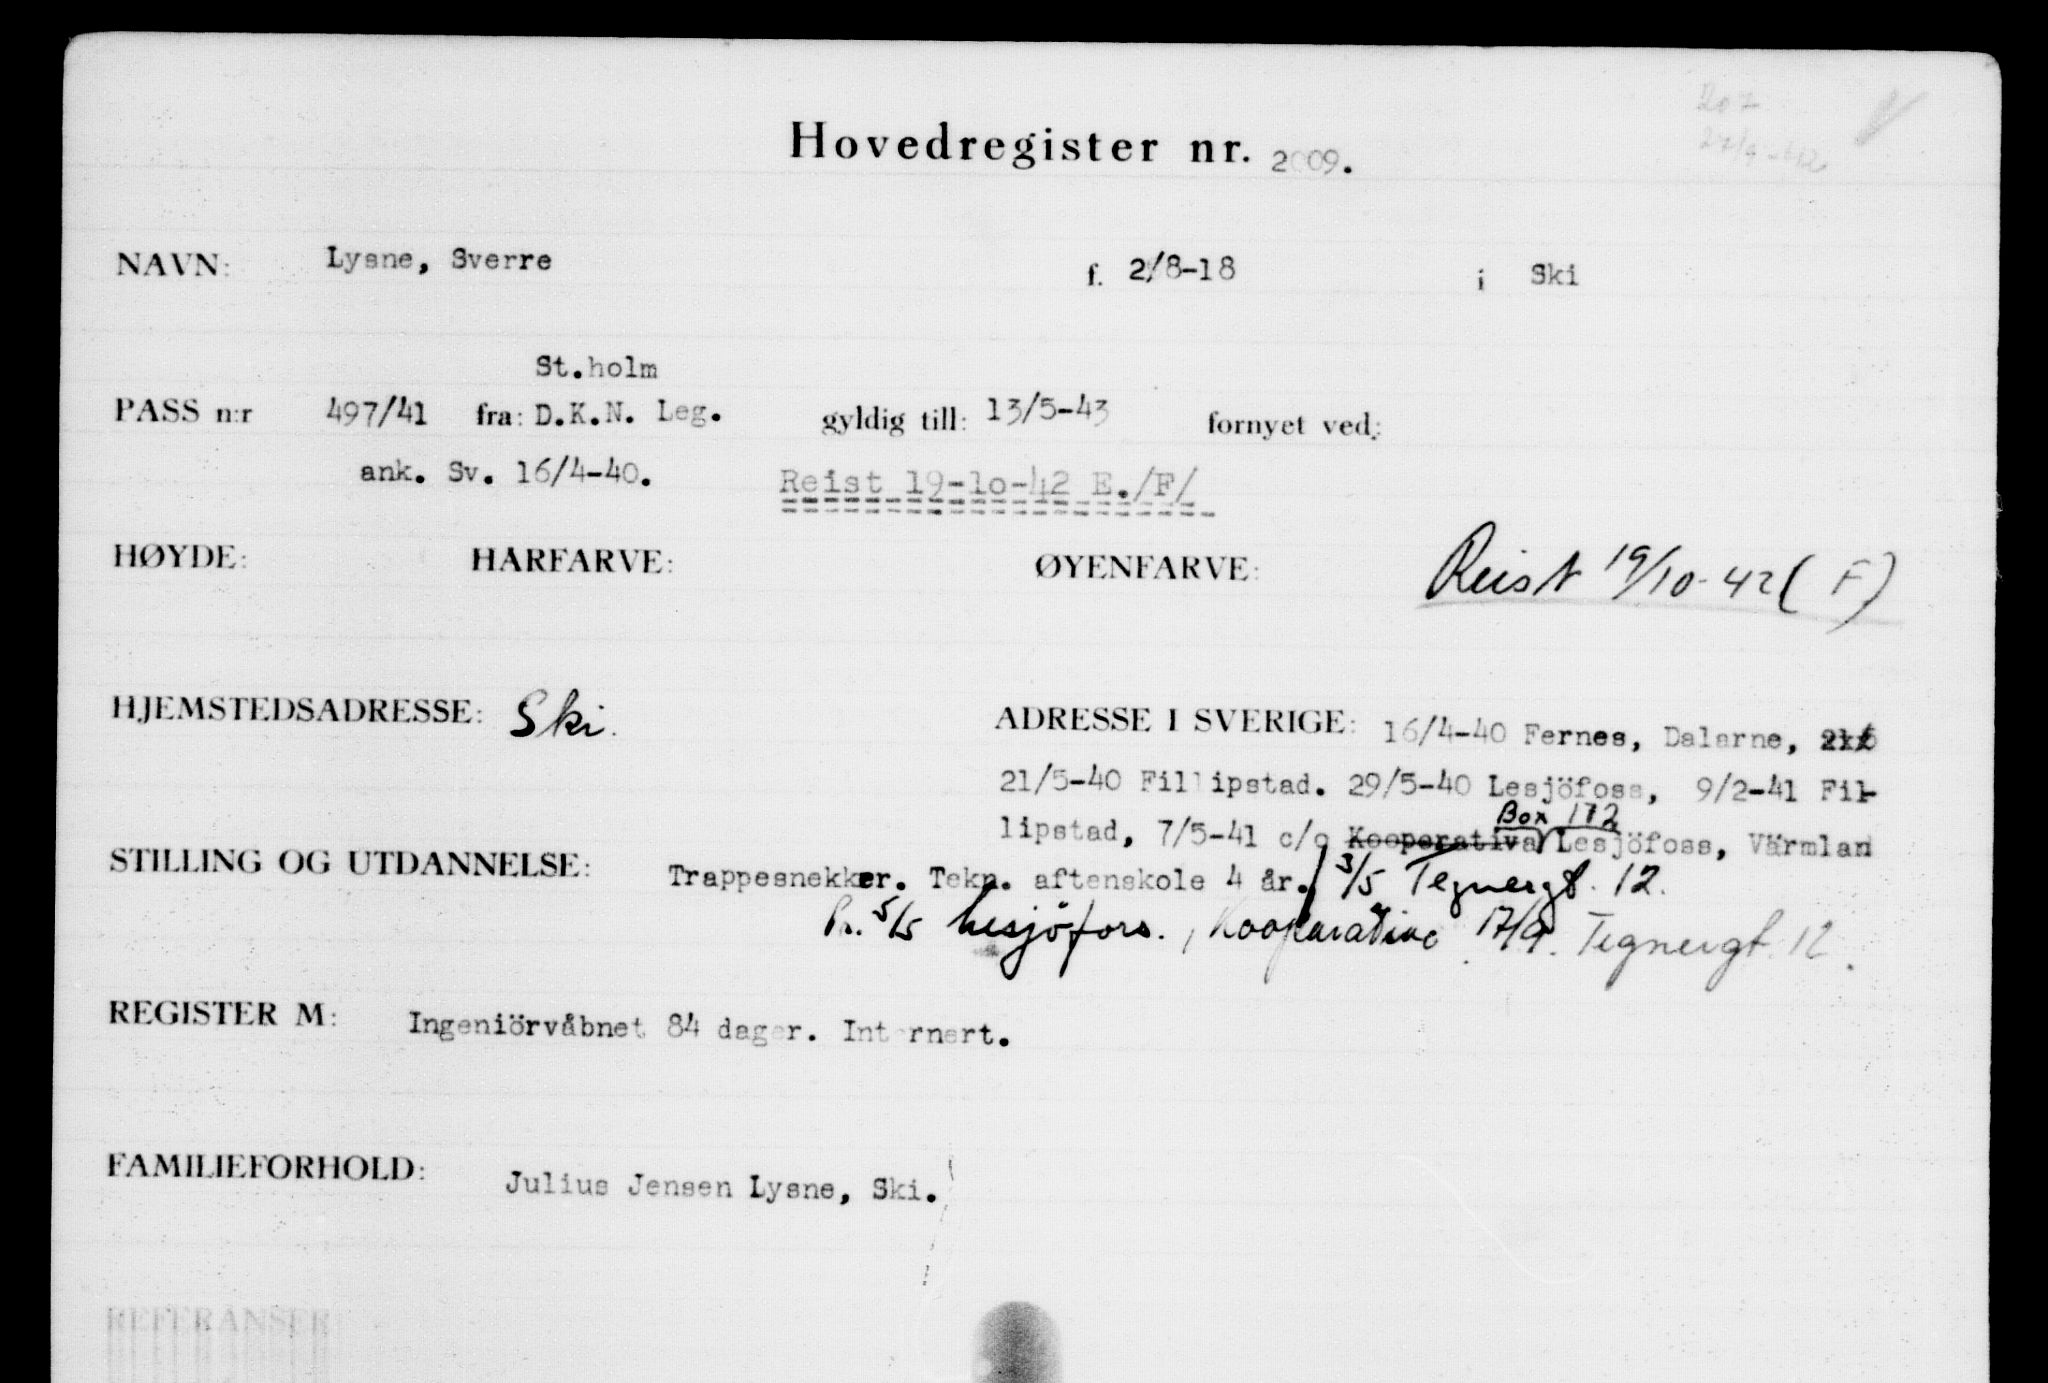 207
Hovedregister nr. 2009.
NAVN: Lysne, Sverre f. 2/8-18 i Ski
St.holm
PASS n:r 497/41 fra: D.K.N. Leg. gyldig till: 13/5-43 fornyet ved:
ank. Sv. 16/4-40. Reist 19-10-42 E./F/
HØYDE: HÅRFARVE: ØYENFARVE: Reist 19/10-42 (F)
HJEMSTEDSADRESSE: Ski. ADRESSE I SVERIGE: 16/4-40 Fernes, Dalarne,
21/5-40 Fillipstad. 29/5-40 Lesjöfoss, 9/2-41 Fil-
Box 172
lipstad, 7/5-41 c/o Kooperativa Lesjöfoss, Värmland
STILLING OG UTDANNELSE: Trappesnekker. Tekn. aftenskole 4 år. 3/5 Tegnergt. 12.
Pr. 5/5 Lesjöfors., Kooperative 17/9. Tegnergt. 12.
REGISTER M: Ingeniörvåbnet 84 dager. Internert.
FAMILIEFORHOLD: Julius Jensen Lysne, Ski.
REFERANSER